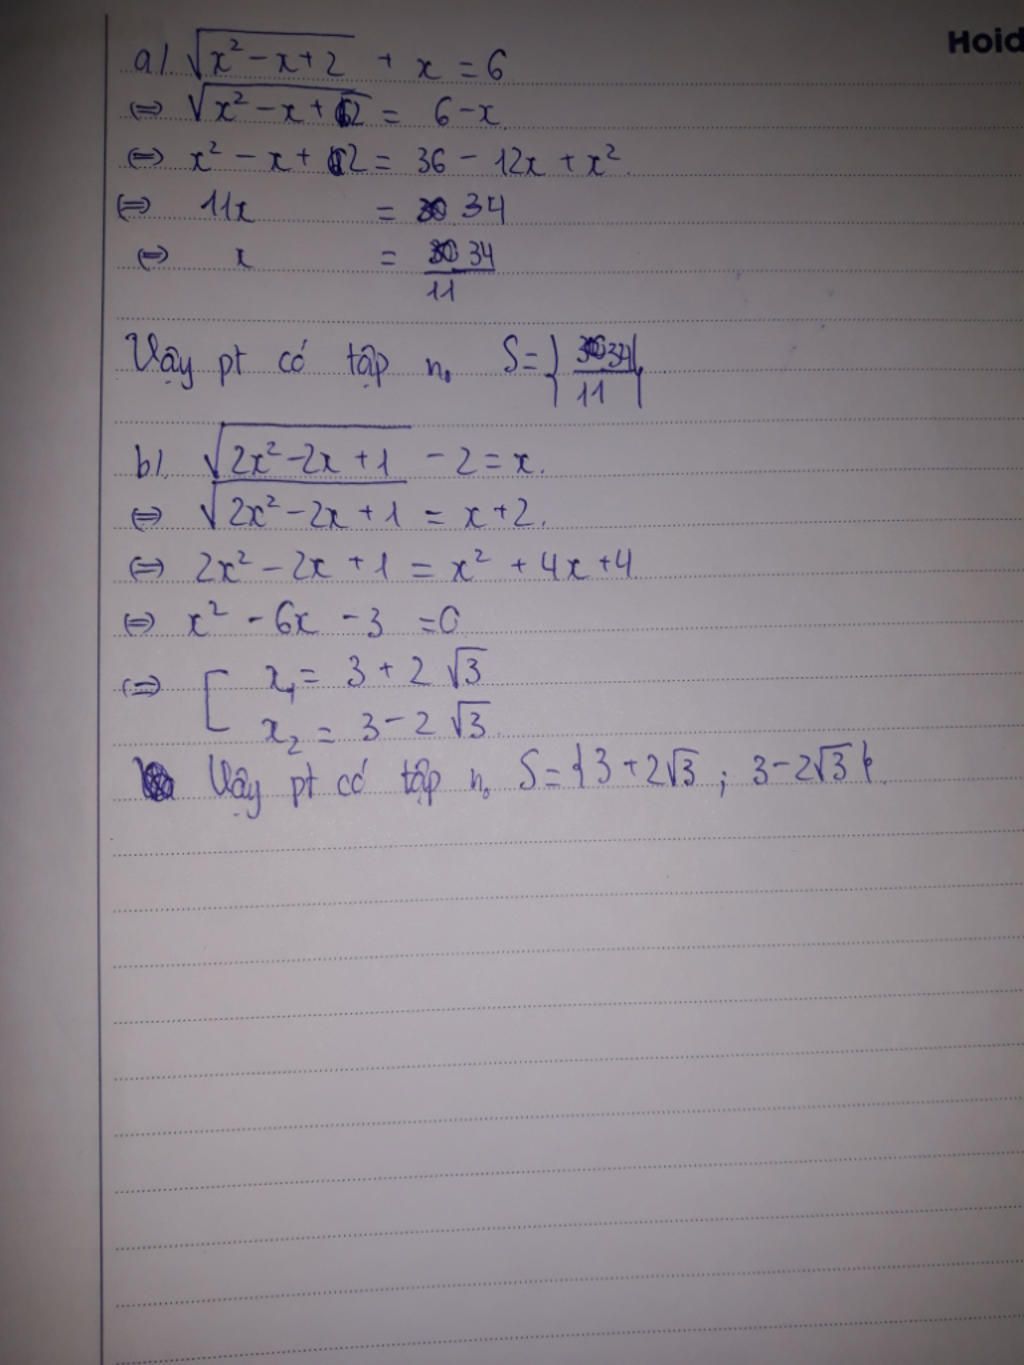 Hoid
a) √(x² - x + 2) + x = 6
⇔ √(x² - x + 2) = 6 - x.
⇔ x² - x + 2 = 36 - 12x + x².
⇔ 11x = 34
⇔ x = 34/11
Vậy pt có tập n₀ S = {34/11}
b). √(2x² - 2x + 1) - 2 = x.
⇔ √(2x² - 2x + 1) = x + 2.
⇔ 2x² - 2x + 1 = x² + 4x + 4
⇔ x² - 6x - 3 = 0
⇔ [ x₁ = 3 + 2√3
x₂ = 3 - 2√3.
Vậy pt có tập n₀ S = {3 + 2√3 ; 3 - 2√3}.